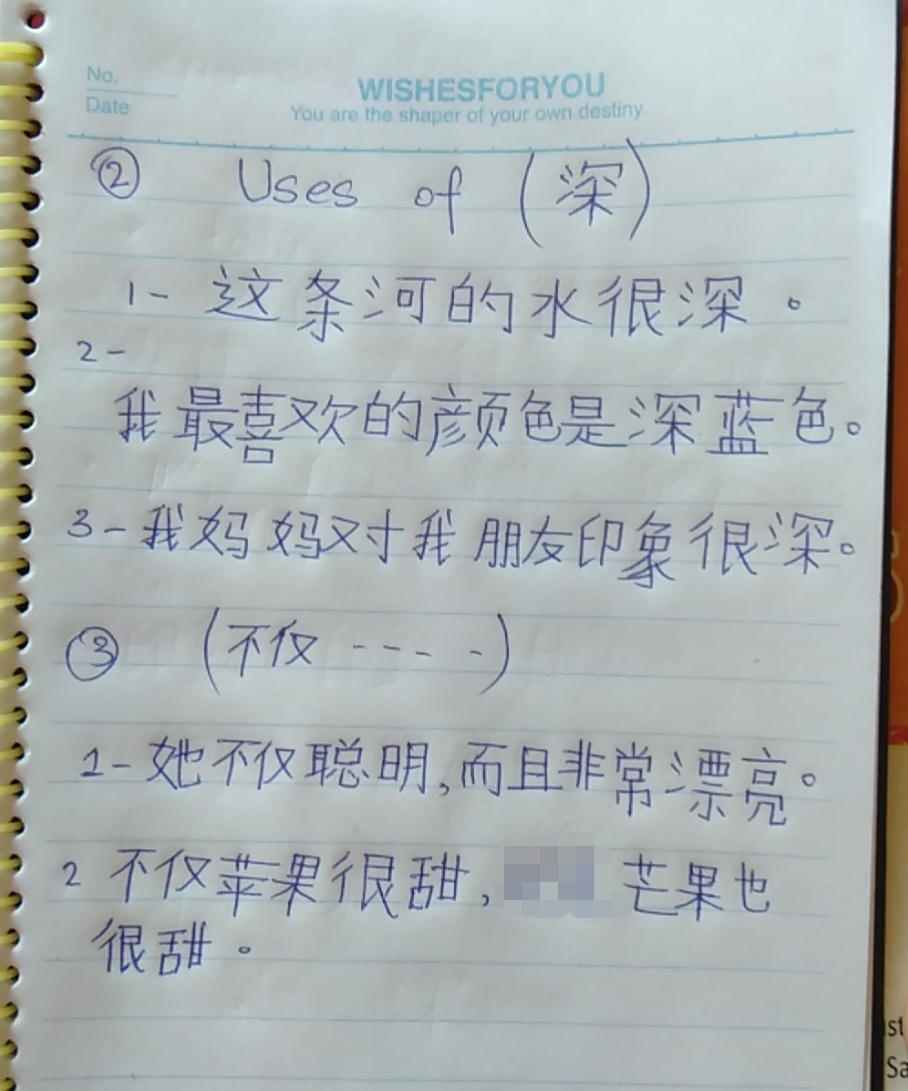 No.
WISHESFORYOU
Date
You are the shaper of your own destiny.
② Uses of (深)
1- 这条河的水很深。
2-
我最喜欢的颜色是深蓝色。
3- 我妈妈对我朋友印象很深。
③ (不仅 ----)
1- 她不仅聪明,而且非常漂亮。
2 不仅苹果很甜, 芒果也
很甜。
st
Sa